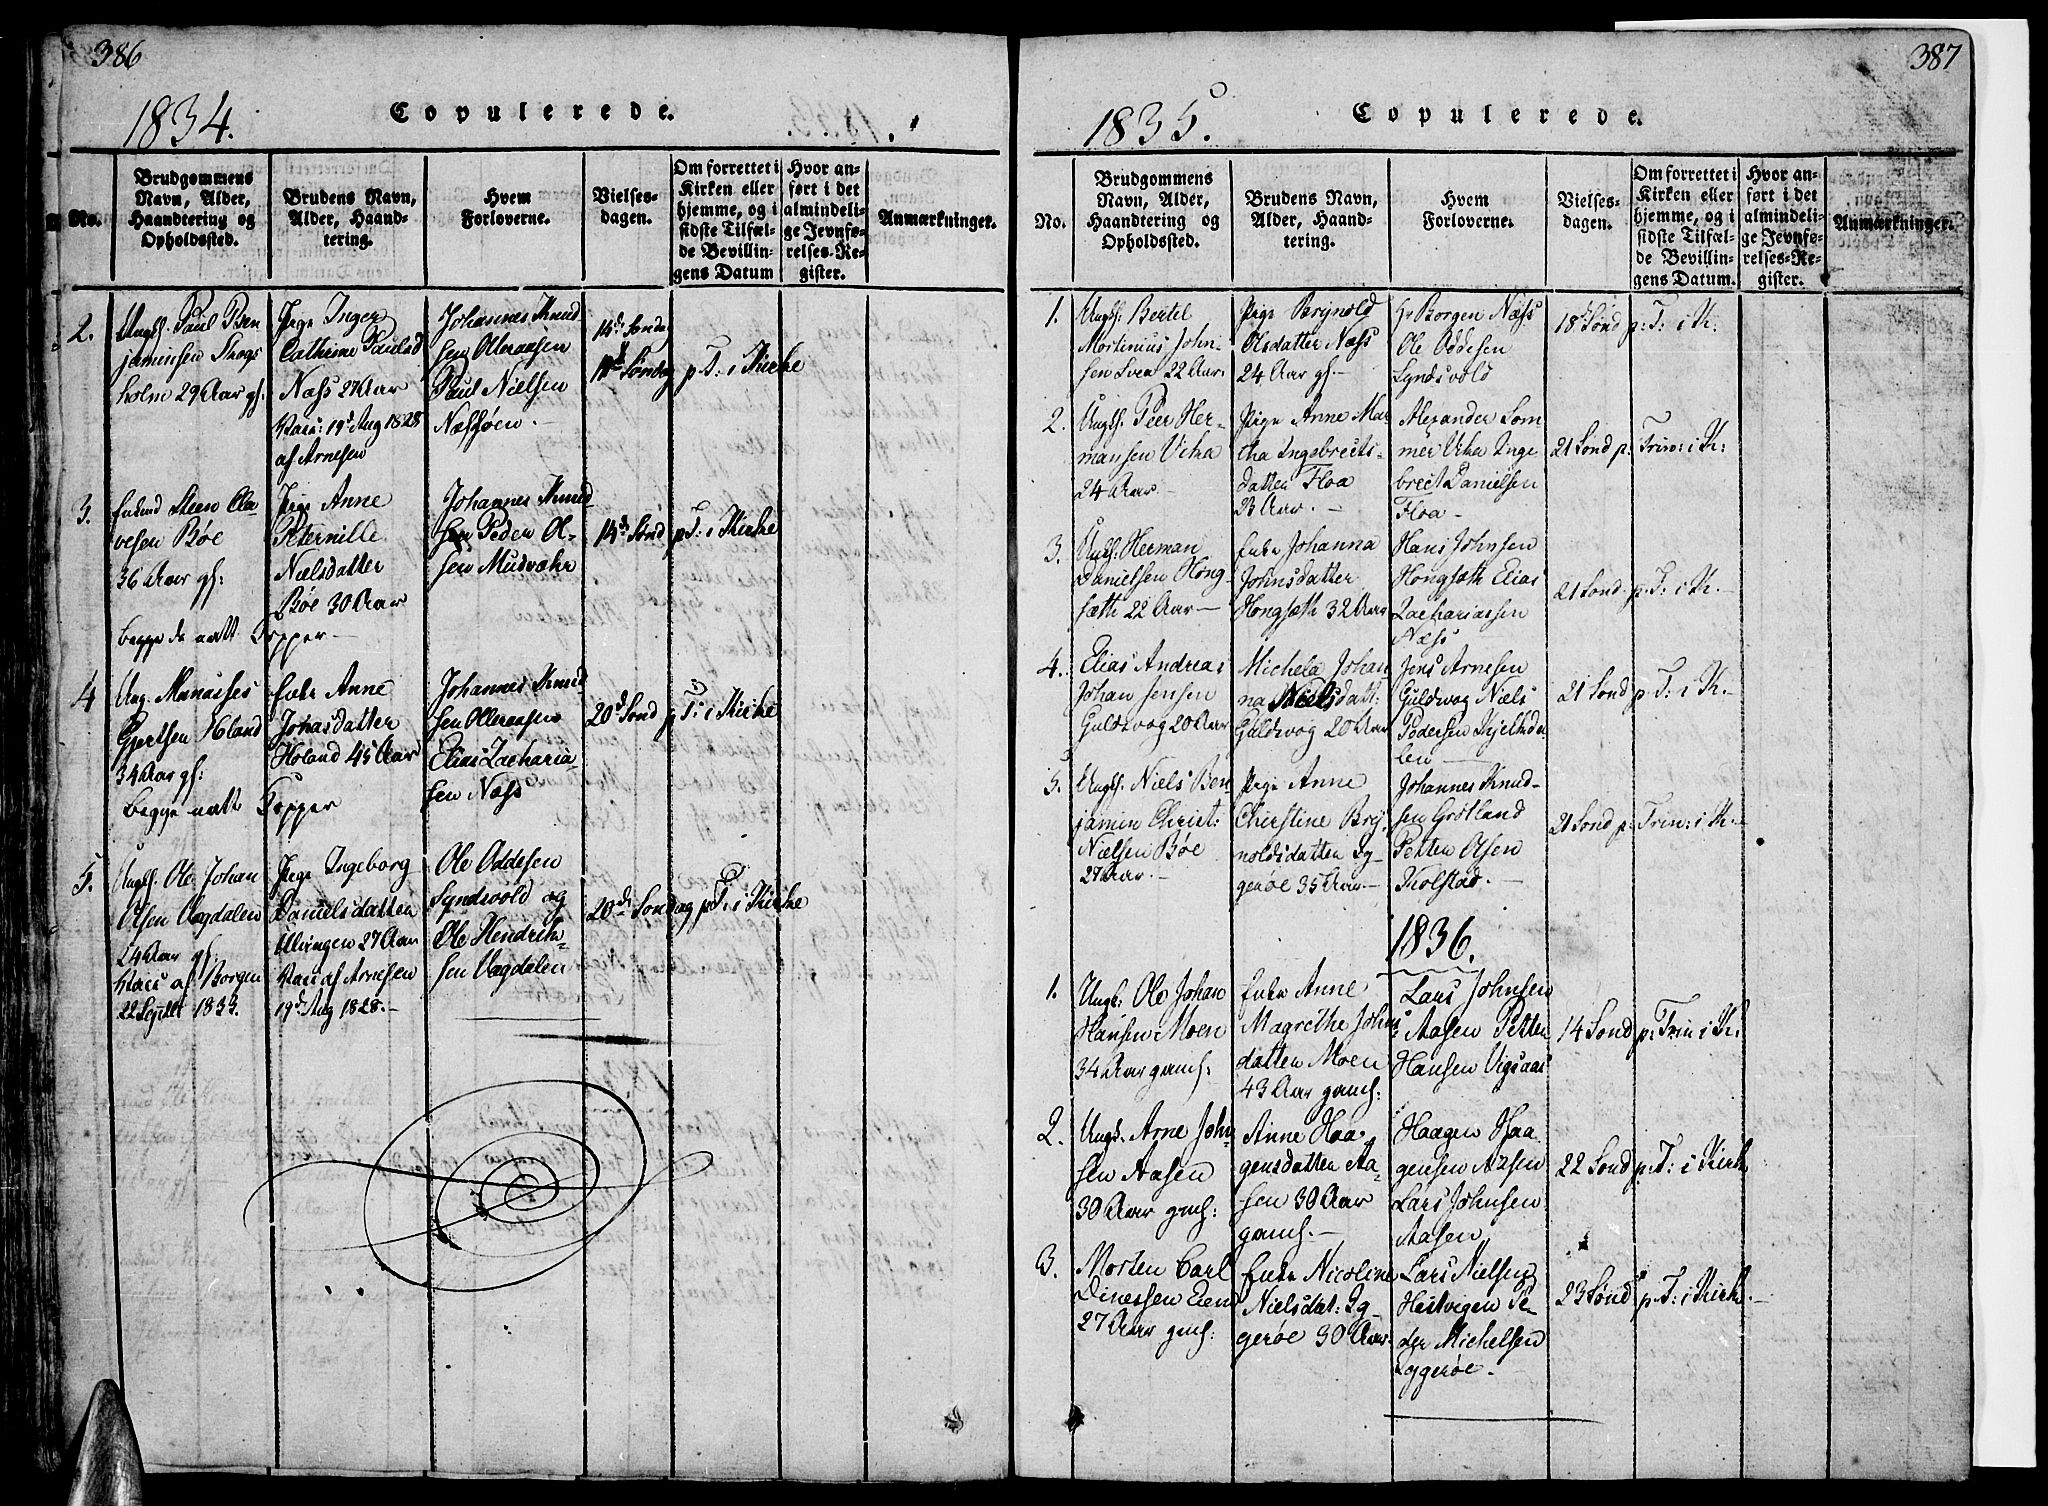 386
1834.
Copulerede.
No.
Brudgommens
Navn, Alder,
Haandtering og
Opholdssted.
Brudens Navn,
Alder, Haand-
tering.
Hvem
Forloverne.
Vielses-
dagen.
Om forrettet i
Kirken eller
hjemme, og i
sidste Tilfæl-
de Bevillin-
gens Datum
Hvor an-
ført i det
almindeli-
ge Jevnfø-
relses-Re-
gister.
Anmærkninger.
2.
Ungk. Paul Ben
jaminsen
holm 29 Aar gl.
Pige Inger
Cathrine Paulsd
Næss 27 Aar
Vacc: 19d Aug 1828
af Arnesen
Johannes Knud
sen Olleraasen
Paul Nielsen
14de Søndag
p T: i Kirke
3.
Enkemd Steen Cla-
vesen Bøe
36 Aar gl:
begge de natt Kopper
Pige Anne
Peternille
Nielsdatter
Bøe 30 Aar
Johannes Knud
sen Peder Ol-
sen Mudvahr
14de Sønd p T: i Kirke
4
Ung. Manasses
Gjertsen Holand
34 Aar gl:
begge natt Kopper
Enke Anne
Johasdatter
Holand 45 Aar
Johannes Knud
sen Olleraasen
Elias Zacharia-
sen Næss
20d Sønd p T: i Kirke
5.
Ungk. Ole Johan
Olsen Vagdalen
24 Aar gl.
Vacc af Borgen
22 Septbr 1833.
Pige Ingeborg
Danielsdatter
Ulvingen 27 Aar
Vacc af Arnesen
19d Aug 1828.-
Ole Oddesen
Syndsvold og
Ole Hendrik-
sen Vagdalen
20de Søndag p T: i Kirke
387
1835.
Copulerede.
No.
Brudgommens
Navn, Alder,
Haandtering og
Opholdssted.
Brudens Navn,
Alder, Haand-
tering.
Hvem
Forloverne.
Vielses-
dagen.
Om forrettet i
Kirken eller
hjemme, og i
sidste Tilfæl-
de Bevillin-
gens Datum.
Hvor an-
ført i det
almindeli-
ge Jevnfø-
relses-Re-
gister.
Anmærkninger.
1.
Ungk. Bertel
Mortinius John-
sen 22 Aar.
Pige Brynold
Olsdatter Næss
24 Aar gl.
Hr Borgen Næss
Ole Oddesen
Syndsvold
18 Sønd p: T: i K:
2.
Ungk. Peer Her-
mansen Vika
24 Aar.
Pige Anne Mar
tha Ingebreits-
datter Floa
23 Aar.
Alexander Som
mer Vika Inge
brect Danielsen
Floa -
21 Sønd p: Trin: i K:
3.
Ungk. Herman
Danielsen Hong-
sæth 22 Aar
Enke Johanna
Johnsdatter
Hongsæth 32 Aar
Hans Johnsen
Hongsæth Elias
Zachariassen
Næss
21 Sønd. p. T: i K.
4.
Elias Andreas
Johan Jensen
Guldsvog 20 Aar
Michela Johan
na Nielsdatt:
Guldsvog 20 Aar
Jens Arnesen
Guldsvog Niels
Pedersen Kjelkda-
len
21 Sønd p T: i K.
5.
Ungk. Niels Ben
jamin Christ:
Nielsen Bøe
27 Aar.
Pige Anne
Christine Bry-
noldsdatter Ig-
gerøe 35 Aar
Johannes Knud-
sen Grøtland
Petter Olsen
Kolstad.
21 Sønd p: Trin: i K.
1836.
1.
Ungk. Ole Johan
Hansen Moen
34 Aar gaml:
Enke Anne
Magrethe Johns
datter Moen
43 Aar gaml:
Lars Johnsen
Aasen Petter
Hansen Vigsaas
14 Sønd p: Trin i K:
2.
Ungk. Arne John
sen Aasen
30 Aar gml:
Anne Haa
gensdatter Aa-
sen 30 Aar
gaml.
Haagen Haa
gensen Aasen
Lars Johnsen
Aasen
22 Sønd p: T: i Kirk
3.
Morten Carl
Dinessen
27 Aar gml:
Enke Nicoline
Nielsdat: Ig-
gerøe 30 Aar.
Lars Nielsen
Hestvigen Pe-
der Michelsen
Iggerøe.
23 Sønd p. T: i Kirk.